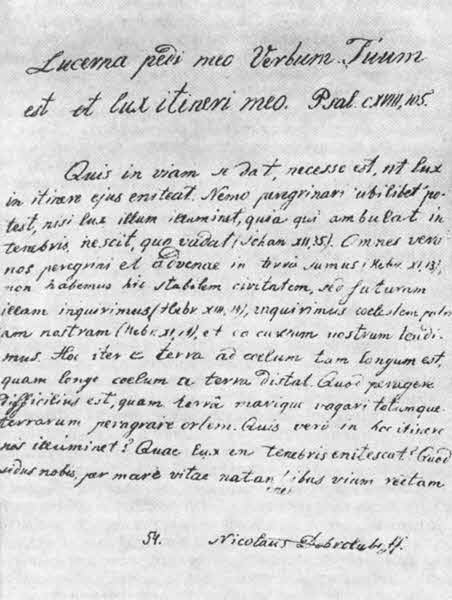 Lucerna pedi meo Verbum Tuum
est et lux itineri meo. Psal. CXVIII, 105.
Quis in viam se dat, necesse est, ut lux
in itinere ejus eniteat. Nemo peregrinari ubilibet po-
test, nisi lux illum illuminet, quia qui ambulat in
tenebris, nescit, quo vadat (Johan XII, 35). Omnes vero
nos peregrini et advenae in terra sumus (Hebr. XI, 13),
non habemus hic stabilem civitatem, sed futuram
illam inquirimus (Hebr XIII, 14), inquirimus coelestem patri-
am nostram (Hebr. XI, 14), et ea cursum nostrum tendi-
mus. Hoc iter e terra ad coelum tam longum est,
quam longe coelum a terra distat. Quod peragere
difficilius est, quam terrâ marique vagari totumque
terrarum peragrare orbem. Quis vero in hoc itinere
nos illuminet? Quae lux in tenebris enitescat? Quod
sidus nobis, per mare vitae natantibus viam rectam
54. Nicolaus Dobroluboff.